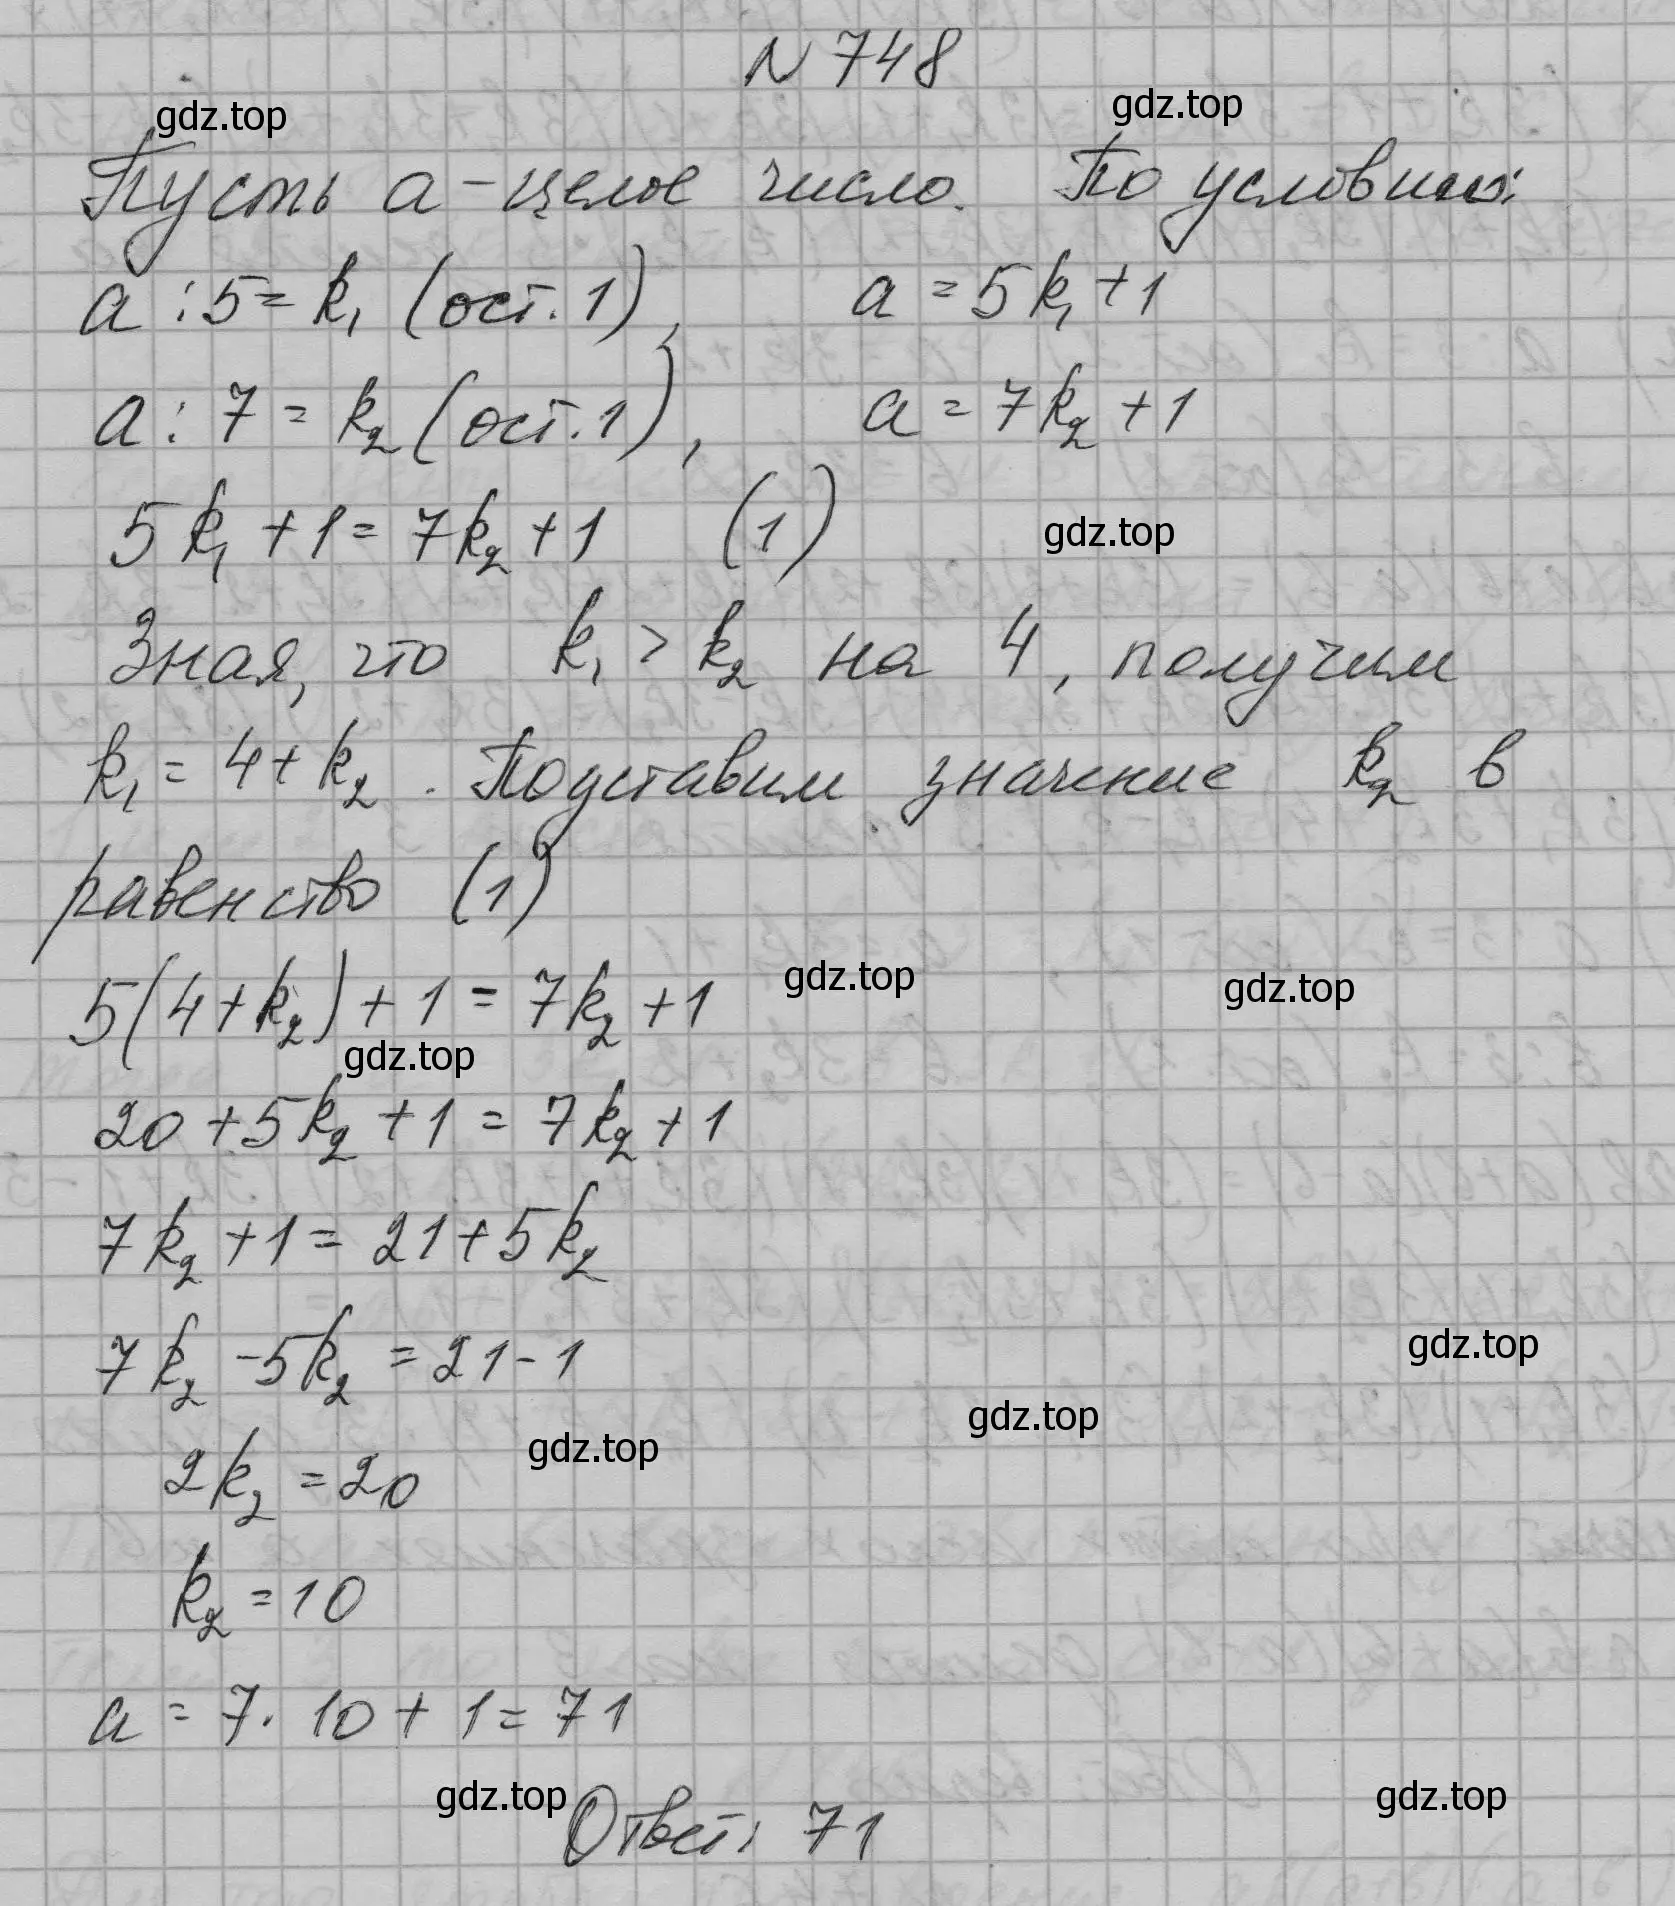 N 748
gdz.top
gdz.top
Пусть a – целое число. По условию:
a : 5 = k₁ (ост. 1), a = 5k₁ + 1
a : 7 = k₂ (ост. 1), a = 7k₂ + 1
5k₁ + 1 = 7k₂ + 1 (1)
gdz.top
Зная, что k₁ > k₂ на 4, получим
k₁ = 4 + k₂. Подставим значение k₂ в
равенство (1)
5(4 + k₂) + 1 = 7k₂ + 1
gdz.top
gdz.top
gdz.top
20 + 5k₂ + 1 = 7k₂ + 1
7k₂ + 1 = 21 + 5k₂
7k₂ - 5k₂ = 21 - 1
gdz.top
gdz.top
2k₂ = 20
gdz.top
k₂ = 10
a = 7 · 10 + 1 = 71
gdz.top
gdz.top
Ответ: 71